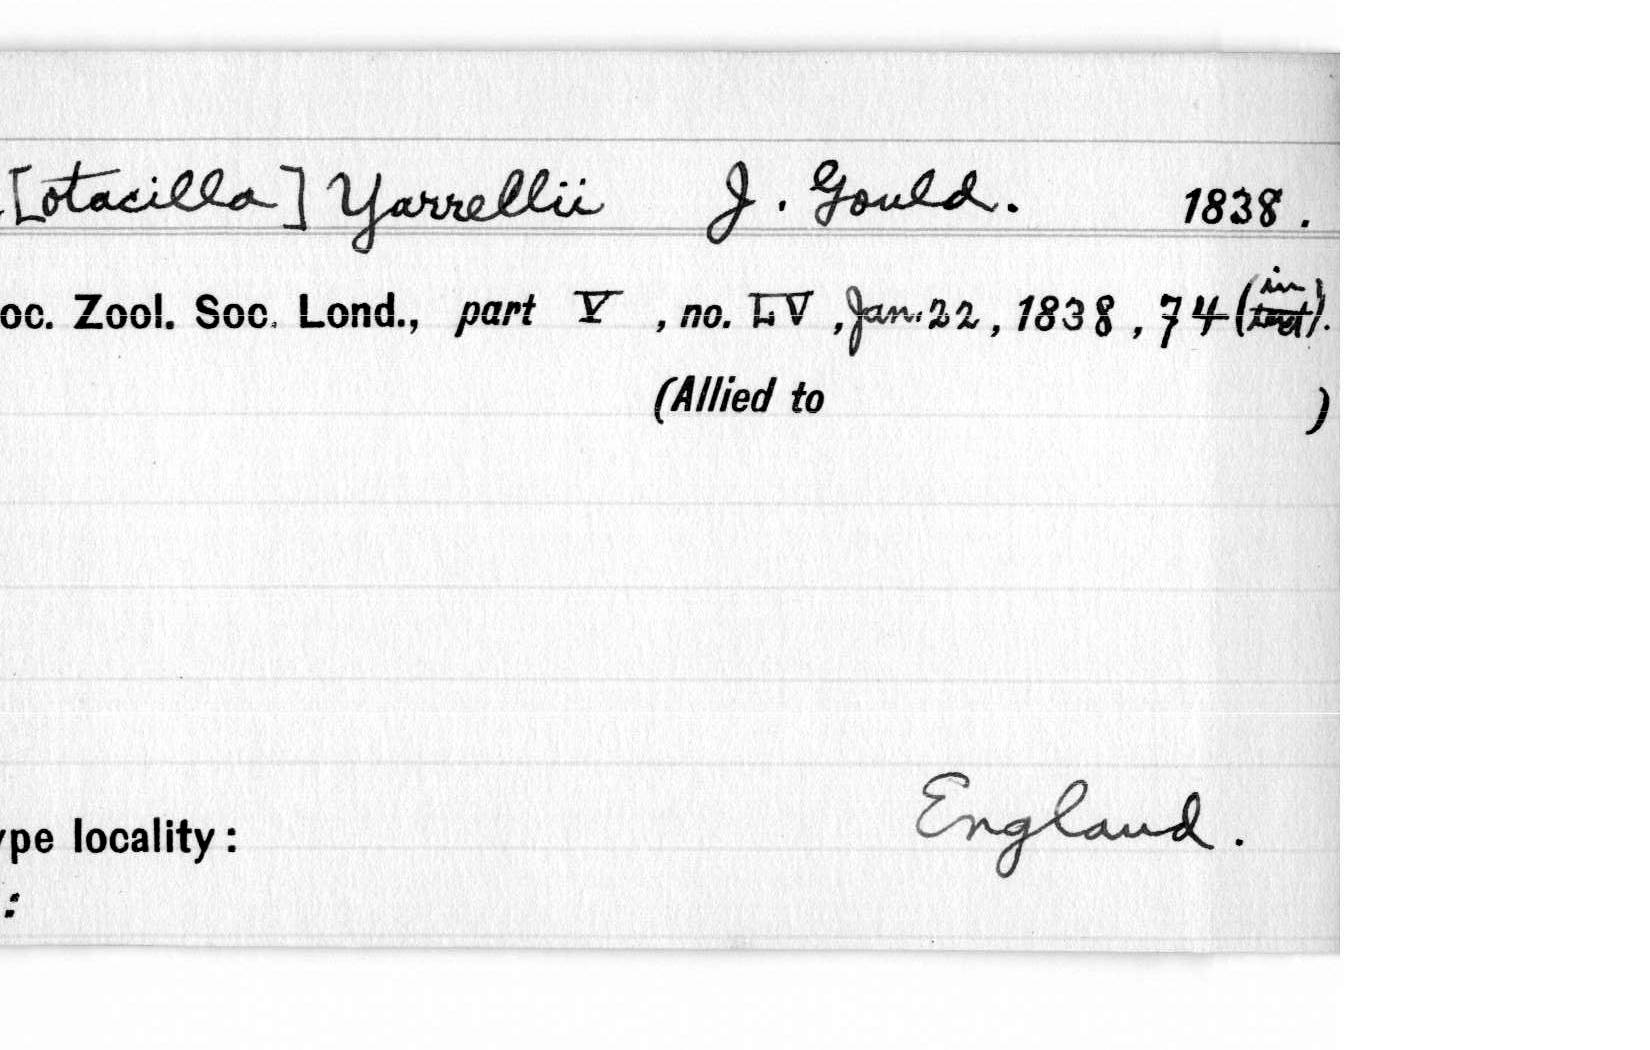 .[otacilla] Yarrellii J. Gould. 1838.
oc. Zool. Soc. Lond., part V, no. LV, Jan. 22, 1838, 74 (in text).
(Allied to )
ype locality: England.
: